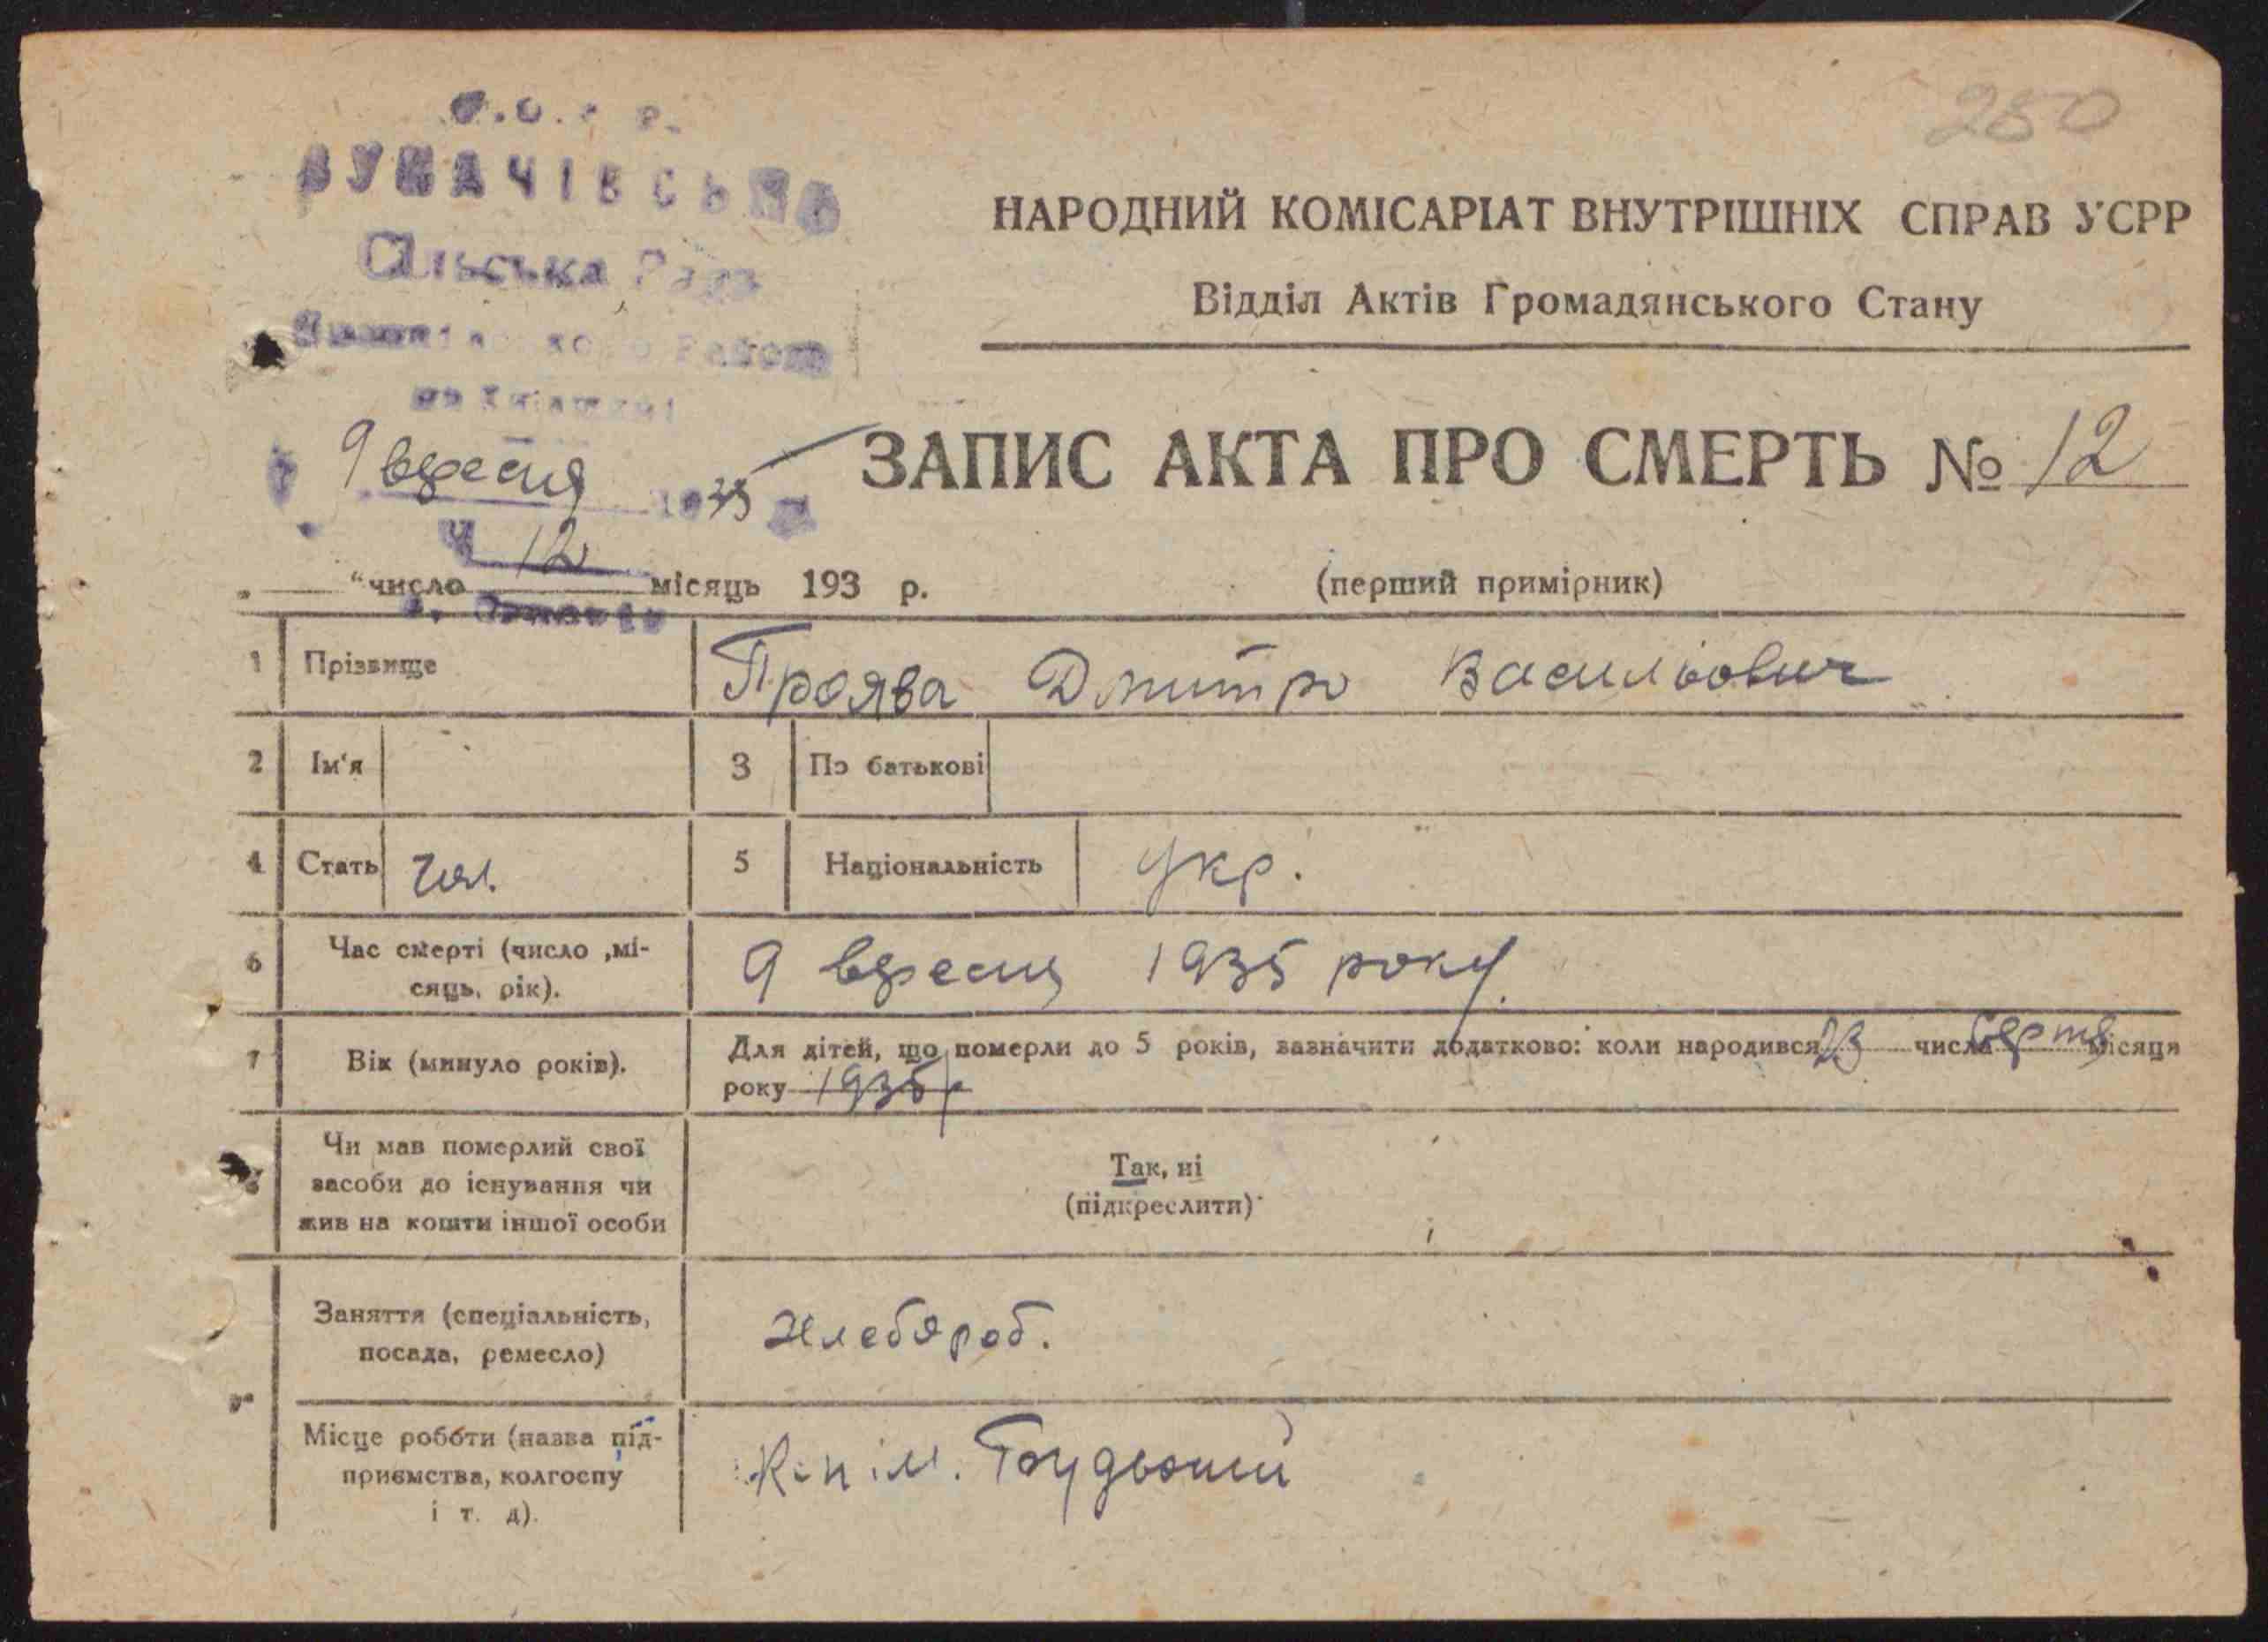 250
Сільська Рада
НАРОДНИЙ КОМІСАРІАТ ВНУТРІШНІХ СПРАВ УСРР
Відділ Актів Громадянського Стану
9 вересня 1935
ЗАПИС АКТА ПРО СМЕРТЬ № 12
Ч 12
"число місяць 193 р.
(перший примірник)
1 Прізвище Проява Дмитро Васильович
2 Ім'я 3 По батькові
4 Стать чол. 5 Національність Укр.
6 Час смерті (число ,мі-
сяць, рік). 9 вересня 1935 року
7 Вік (минуло років). Для дітей, що померли до 5 років, зазначити додатково: коли народився 23 числа місяця
року 1935 р
Чи мав померлий свої
засоби до існування чи
жив на кошти іншої особи
Так, ні
(підкреслити)
Заняття (спеціальність,
посада, ремесло) Хлебороб.
Місце роботи (назва під-
приємства, колгоспу
і т. д).
ім.